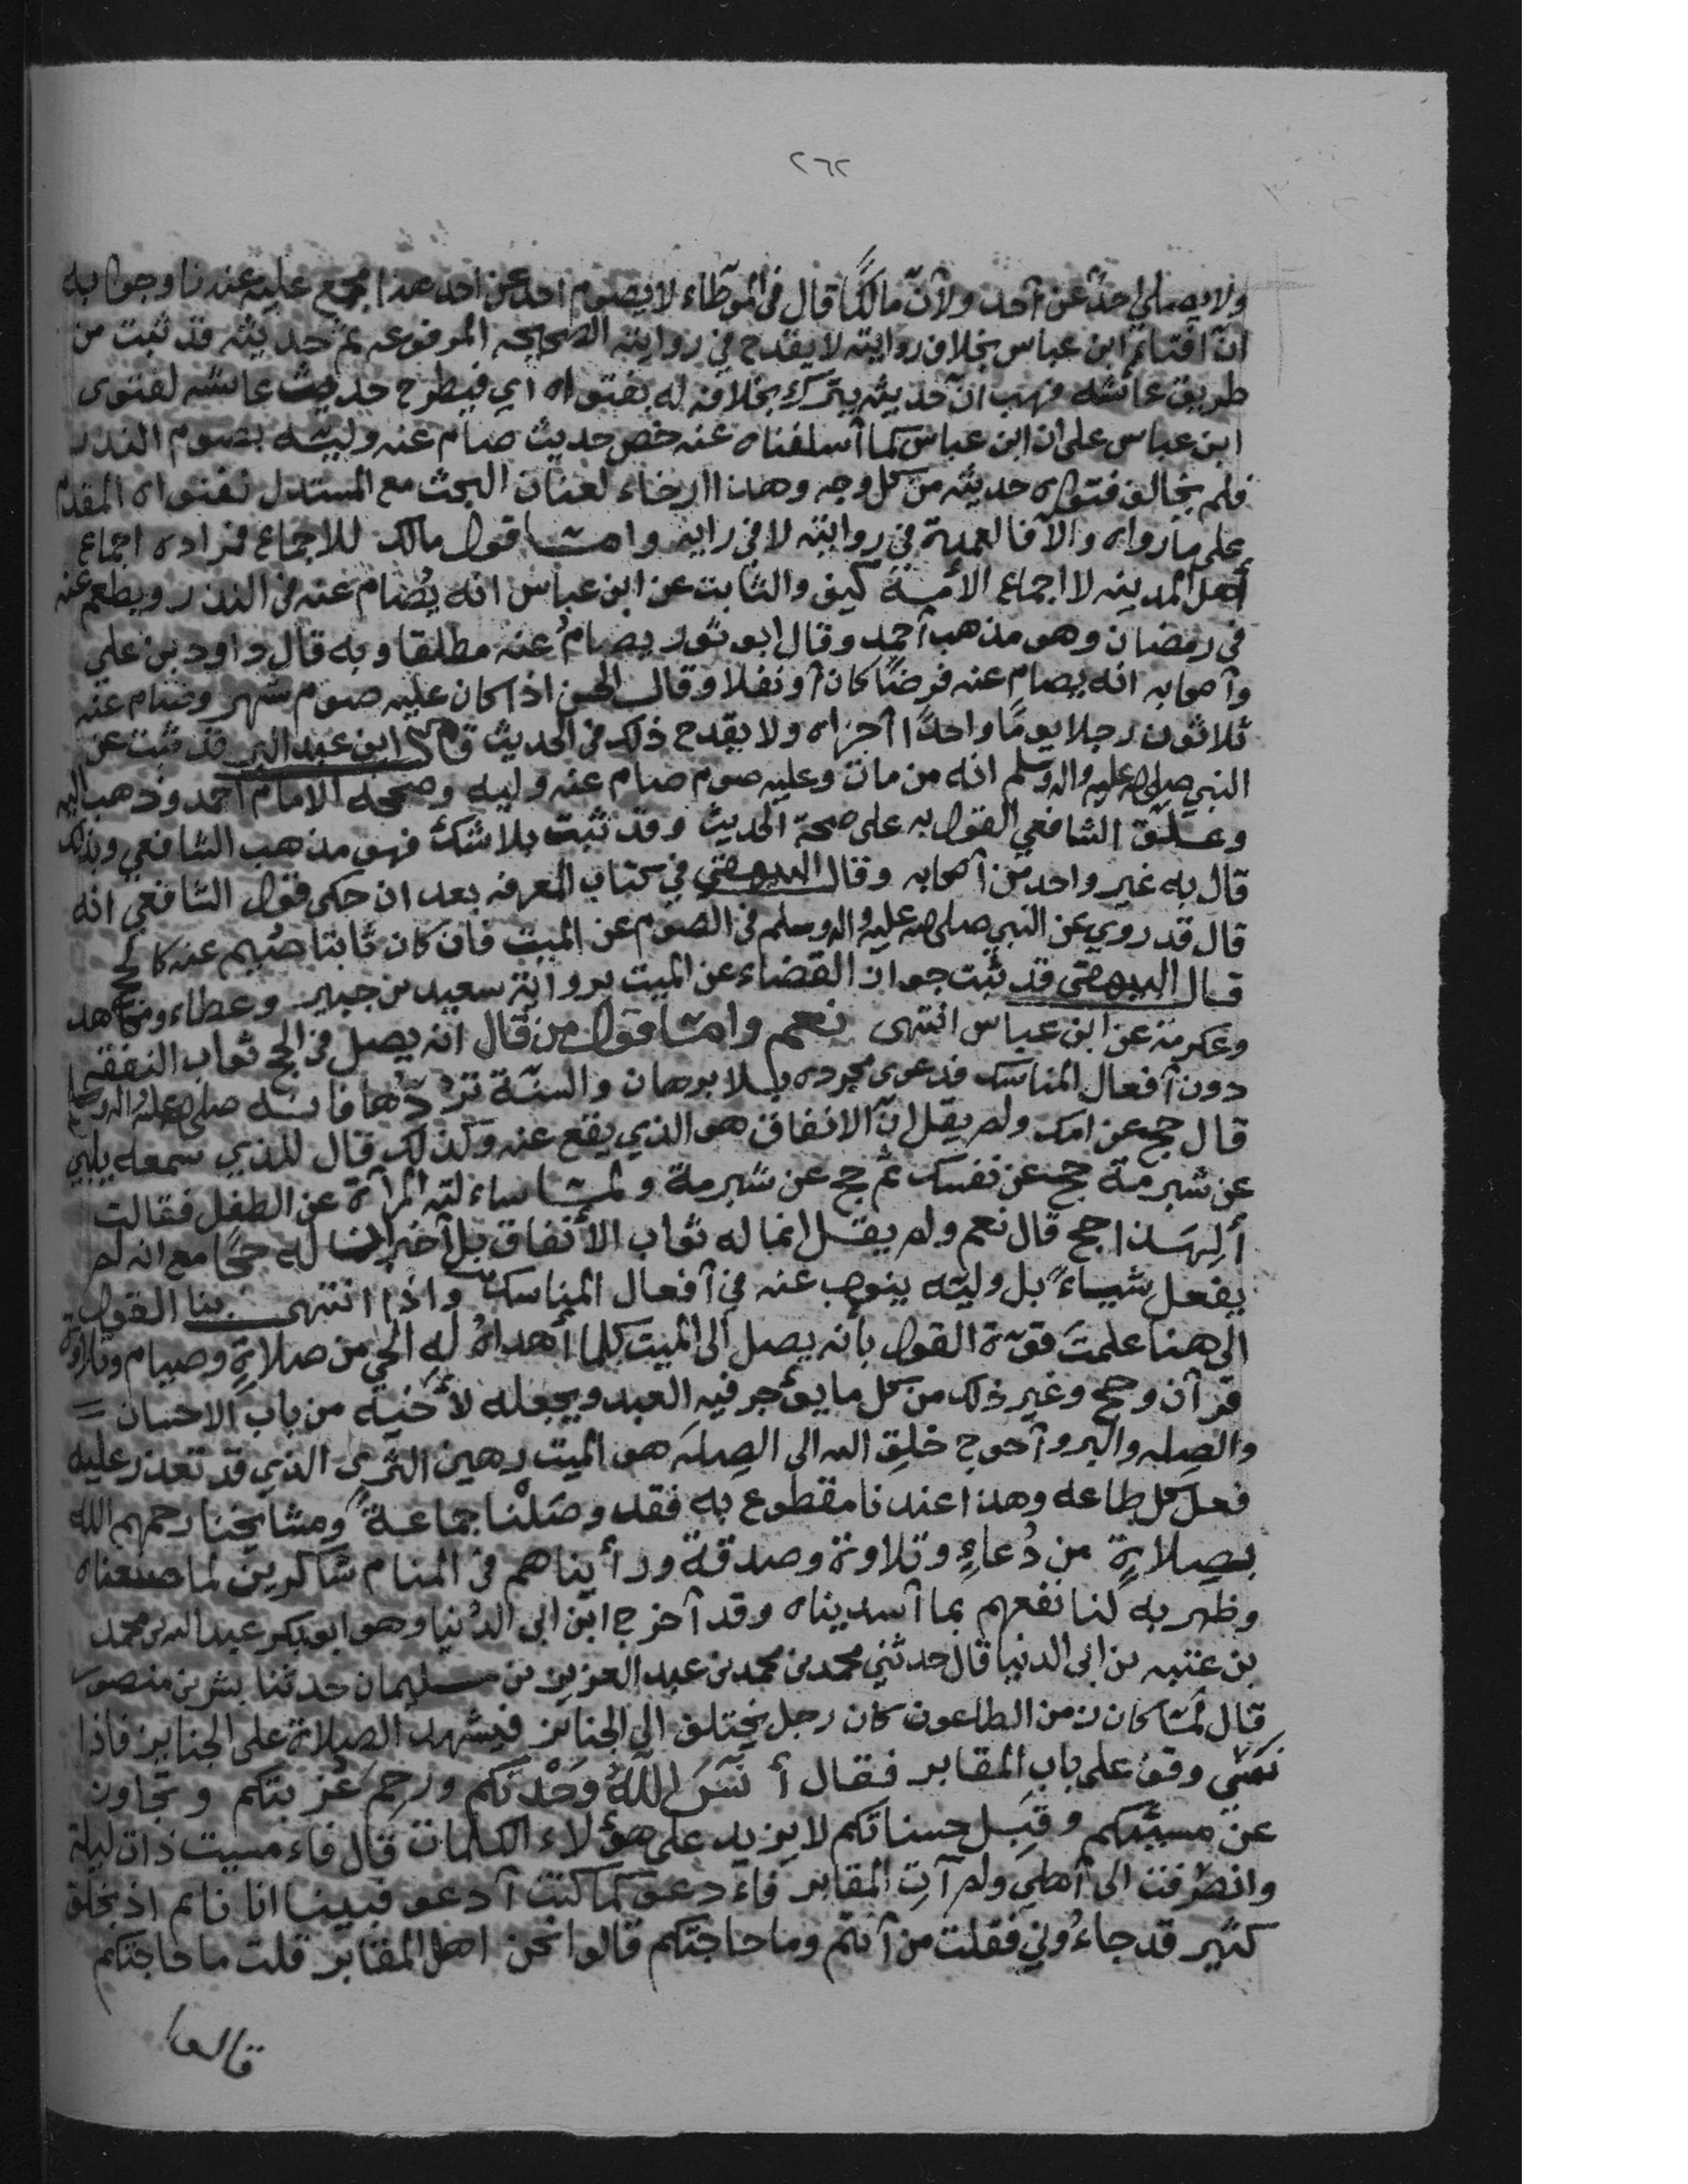 ٢٦٢
ولا يصلي احدٌ عن أحد ولأنّ مالكًا قال في الموطاء لا يصوم احد عن احد هذا مجمع عليه عندنا وجوابه
ان افتاء ابن عباس بخلاف روايته لا يقدح في روايته الصحيحه المرفوعه ثم حديثه قد ثبت من
طريق عائشه فهب ان حديثه يترك بخلافه له بفتواه اي فيطرح حديث عائشه لفتوى
ابن عباس على ان ابن عباس كما أسلفناه عنه خص حديث صام عنه وليّه بصوم النذر
فلم يخالف فتواه حديثه من كل وجه وهذا ارخاء لعنان البحث مع المستدل بفتواه المقدم
على ما رواه والا فالعمدة في روايته لا في رايه وامّا قول مالك للاجماع فمراده اجماع
أهل المدينه لا اجماع الأمّة كيف والثابت عن ابن عباس انه يُصام عنه في النذر ويطعم عنه
في رمضان وهو مذهب أحمد وقال ابو ثور يصام عنه مطلقا وبه قال داود بن علي
وأصحابه انه يصام عنه فرضًا كان أو نفلا وقال الحسن اذا كان عليه صوم شهر وصام عنه
ثلاثون رجلا يومًا واحدًا أجزاه ولا يقدح ذلك في الحديث قال ابن عبد البر قد ثبت عن
النبي صلى الله عليه واله وسلم انه من مات وعليه صوم صام عنه وليه وصححه الامام أحمد وذهب اليه
وعلّق الشافعي القول به على صحة الحديث وقد ثبت بلا شك فهو مذهب الشافعي وبذلك
قال به غير واحد من أصحابه وقال البيهقي في كتاب المعرفه بعد ان حكى قول الشافعي انه
قال قد روي عن النبي صلى الله عليه واله وسلم في الصوم عن الميت فان كان ثابتا صُيم عنه كالحج
قال البيهقي قد ثبت جواز القضاء عن الميت بروايةِ سعيد بن جبير وعطاء ومجاهد
وعكرمة عن ابن عباس انتهى نعم وامّا قول من قال انه يصل في الحج ثواب النفقه
دون أفعال المناسك فدعوى مجرده بلا برهان والسنّة تردّها فانّه صلى الله عليه واله وسلم
قال حج عن امك ولم يقل انّ الانفاق هو الذي يقع عنه وكذلك قال للذي سمعه يلبي
عن شبرمة حج عن نفسك ثم حج عن شبرمة ولمّا ساءلته المرأة عن الطفل فقالت
ألِهَذا حج قال نعم ولم يقل انما له ثواب الأنفاق بل أخبر انّ له حجًا مع انه لم
يفعل شيئاءً بل وليّه ينوب عنه في أفعال المناسك واذا انتهى بنا القول
الى هنا علمتَ قوّة القول بأنه يصل الى الميت كلما أهداهُ له الحي من صلاةٍ وصيام وتلاوة
قرآن وحج وغير ذلك من كل ما يؤجر فيه العبد ويجعله لأخيه من باب الاحسان
والصله والبر وأحوج خلق الله الى الصله هو الميت رهين الثرى الذي قد تعذر عليه
فعل كل طاعه وهذا عندنا مقطوع به فقد وصَلْنا جماعةً ومشايخنا رحمهم الله
بصلاةٍ من دُعاءٍ وتلاوة وصدقة ورأيناهم في المنام شاكرين لما صنعناه
وظهر به لنا نفعهم بما أسديناه وقد أخرج ابن ابي الدُنيا وهو ابو بكر عبد الله بن محمد
بن عتبه بن ابي الدنيا قال حدثني محمد بن محمد بن عبد العزيز بن سليمان حدثنا بشر بن منصور
قال لمّا كان زمن الطاعون كان رجل يختلف الى الجنائز فيشهد الصلاة على الجنايز فاذا
مَسّى وقف على باب المقابر فقال أنَسَ اللهُ وَحْدتكم ورحم غربتكم وتجاوز
عن مسيئكم وقبل حسناتكم لا يزيد على هؤلاء الكلمات قال فاءمسيت ذات ليلة
وانصرفت الى أهلي ولم آت المقابر فاءدعو كما كنت أدعو فبينا انا نايم اذ بخلق
كثير قد جاءُوني فقلت من أنتم وما حاجتكم قالوا نحن اهل المقابر قلت ما حاجتكم
قالوا